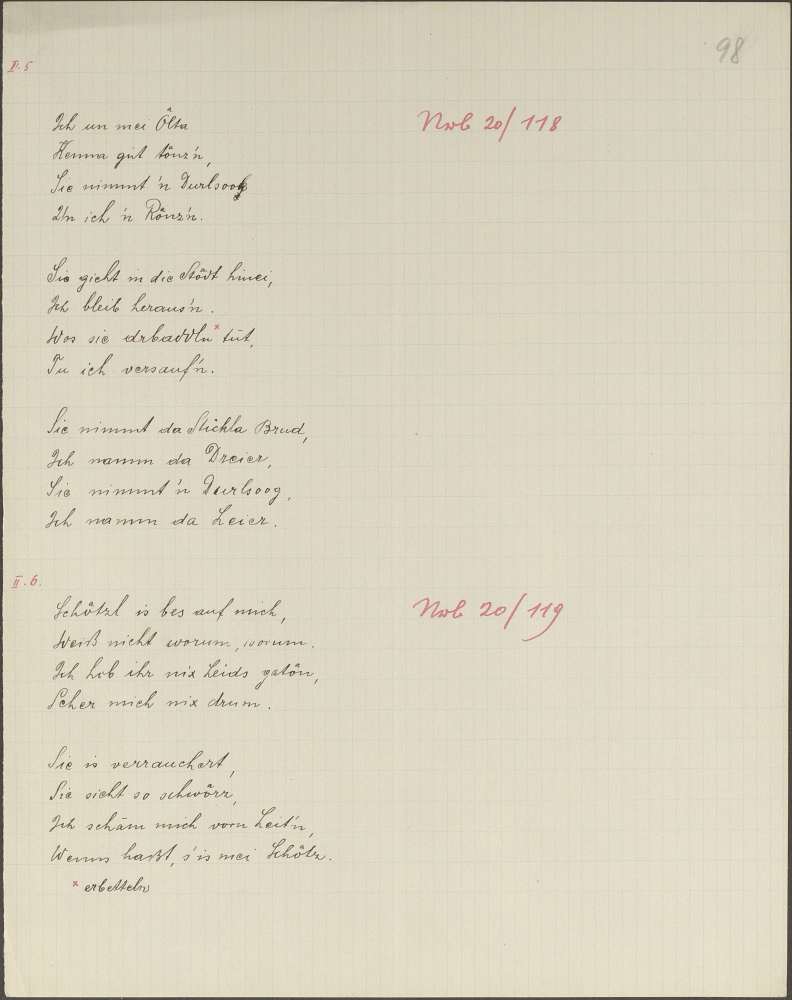 98
II. 5
Ich un mei Ôlta Nrb 20/118
Kenna gut tônz'n,
Sie nimmt 'n Durlsoog
Un ich 'n Rônz'n.
Sie gieht in die Stôdt hinei,
Ich bleib heraus'n.
Wos sie drbaddln* tut,
Tu ich versauf'n.
Sie nimmt da Stickla Brud,
Ich namm da Dreier,
Sie nimmt 'n Durlsoog,
Ich namm da Leier.
II. 6.
Schôtzl is bes auf mich, Nrb 20/119
Weiß nicht worum, worum.
Ich hob ihr nix Leids gatôn,
Scher mich nix drum.
Sie is verrauchert,
Sie sieht so schwôrz,
Ich schäm mich vorn Leit'n,
Wenns haßt, s'is mei Schôtz.
* erbetteln